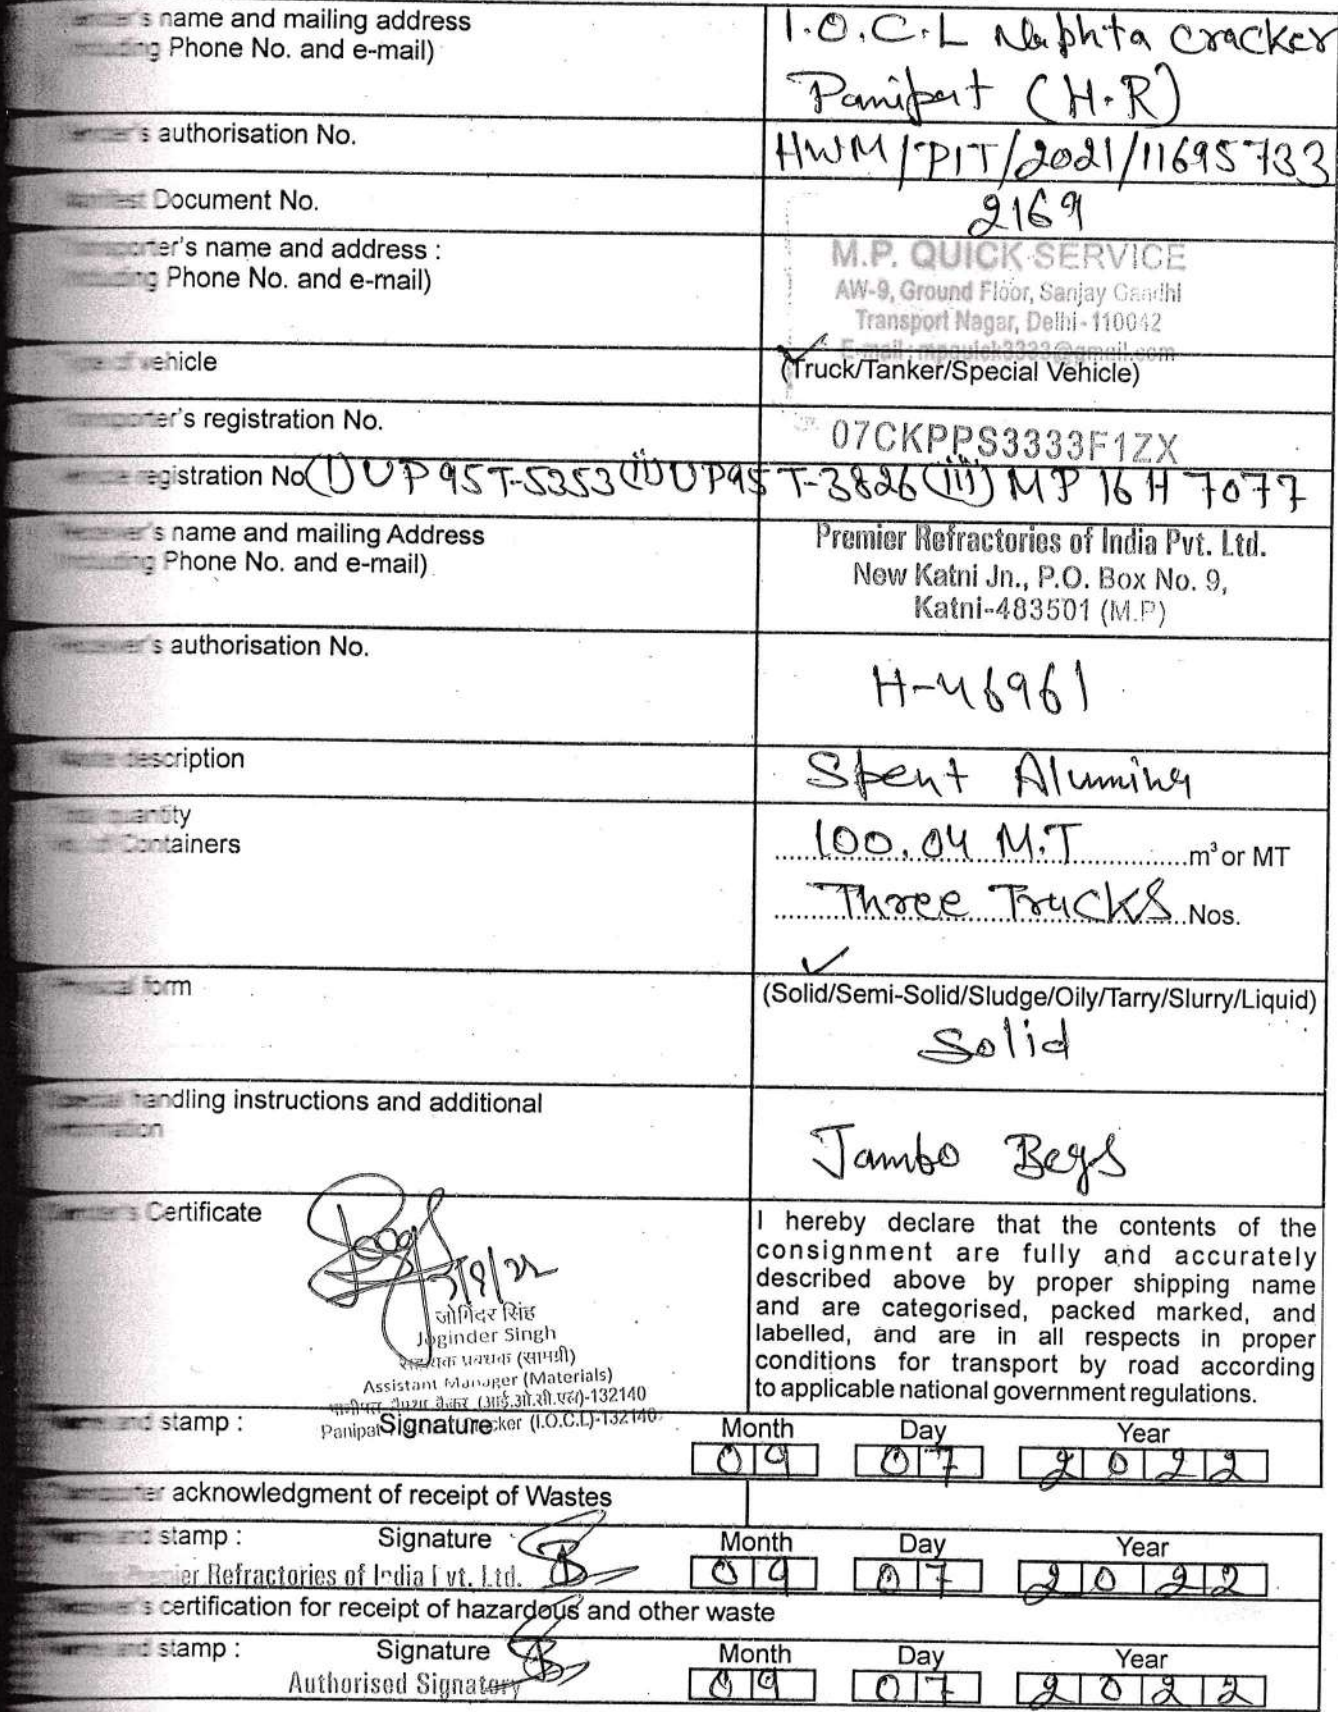 's name and mailing address
Phone No. and e-mail)
I.O.C.L Naphta cracker
Panipat (H.R)
's authorisation No.
HWM/PIT/2021/11695733
Document No.
2169
's name and address :
Phone No. and e-mail)
M.P. QUICK SERVICE
AW-9, Ground Floor, Sanjay Gandhi
Transport Nagar, Delhi-110042
E-mail : mpquick3333@gmail.com
vehicle
(Truck/Tanker/Special Vehicle)
's registration No.
07CKPPS3333F1ZX
registration No (i) UP 95T-5353 (ii) UP95 T-3826 (iii) MP 16 H 7077
's name and mailing Address
Phone No. and e-mail)
Premier Refractories of India Pvt. Ltd.
New Katni Jn., P.O. Box No. 9,
Katni-483501 (M.P)
's authorisation No.
H-46961
description
Spent Alumina
quantity
Containers
100.04 M.T m³ or MT
Three Trucks Nos.
form
(Solid/Semi-Solid/Sludge/Oily/Tarry/Slurry/Liquid)
Solid
handling instructions and additional
Jambo Begs
's Certificate
7/9/22
जोगिंदर सिंह
Joginder Singh
सहायक प्रबंधक (सामग्री)
Assistant Manager (Materials)
(आई.ओ.सी.एल)-132140
Panipat cker (I.O.C.L)-132140
I hereby declare that the contents of the
consignment are fully and accurately
described above by proper shipping name
and are categorised, packed marked, and
labelled, and are in all respects in proper
conditions for transport by road according
to applicable national government regulations.
stamp : Signature Month Day Year
09 07 2022
acknowledgment of receipt of Wastes
stamp : Signature Month Day Year
Premier Refractories of India Pvt. Ltd. 09 07 2022
's certification for receipt of hazardous and other waste
stamp : Signature Month Day Year
Authorised Signatory 09 07 2022